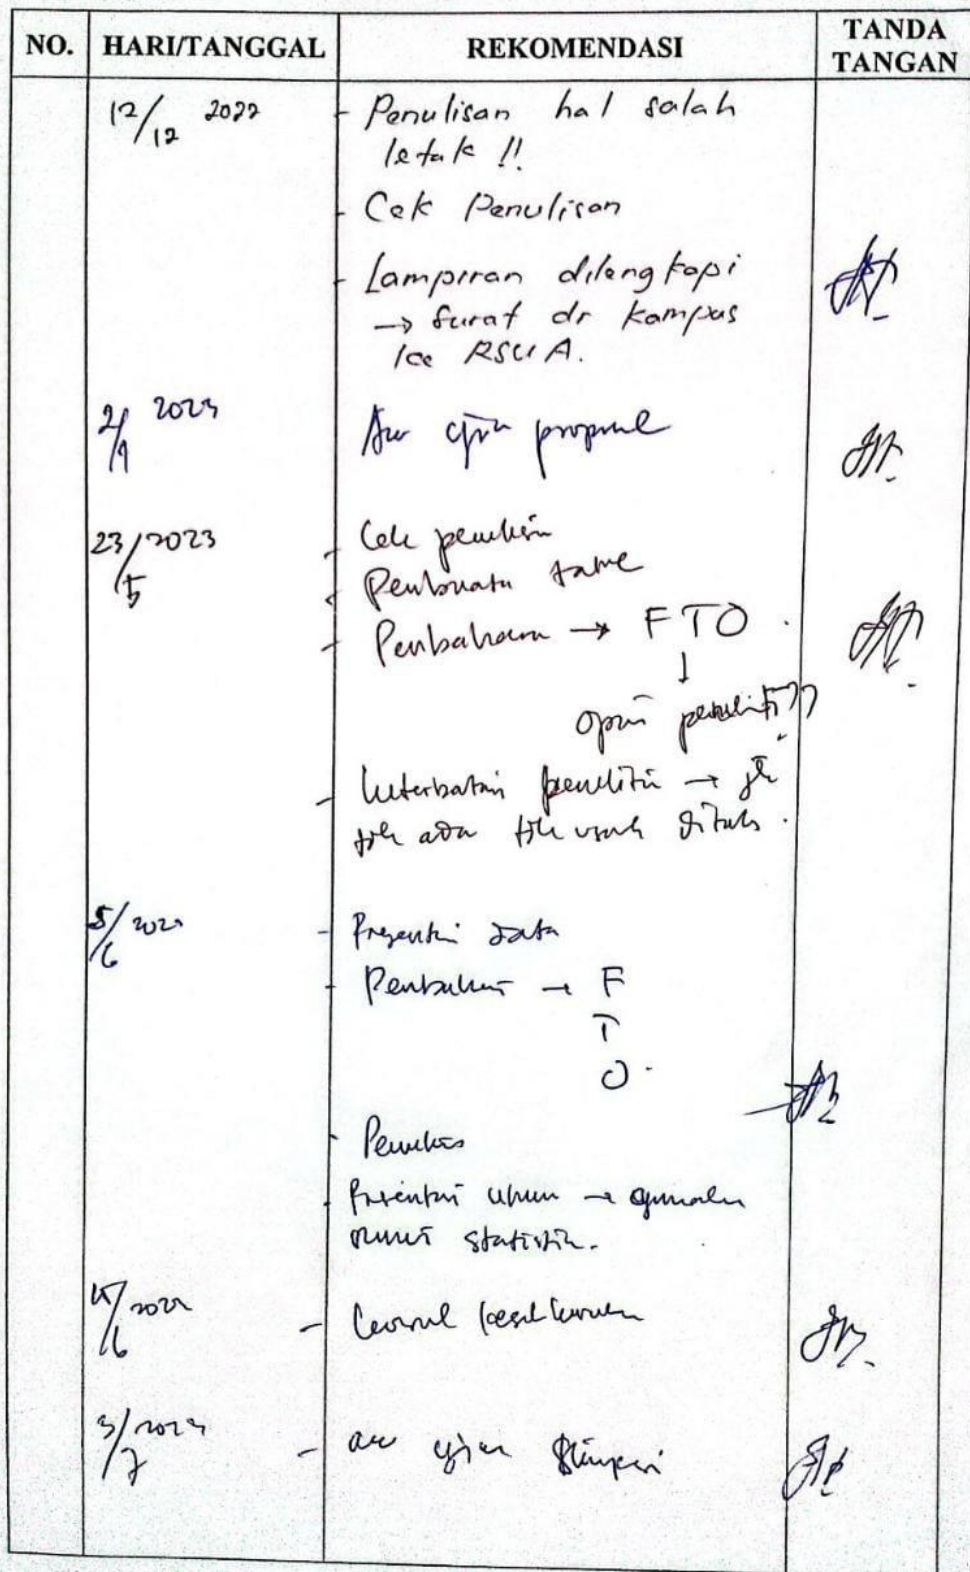 NO. HARI/TANGGAL REKOMENDASI TANDA TANGAN
12/12 2022 - Penulisan hal salah
letak !!
- Cek Penulisan
- Lampiran dilengkapi
→ Surat dr kampus
ke RSUA.
2/1 2023 Acc ujian proposal
23/5 2023 - Cek penulisan
- Pembuatan tabel
- Pembahasan → FTO
↓
opini peneliti??
- Keterbatasan penelitian → jk
tdk ada tdk usah ditulis.
5/6 2023 - Presentasi data
- Pembahasan → F
T
O.
- Penulisan
- statistik.
/6 - 
3/7 2023 - acc ujian skripsi